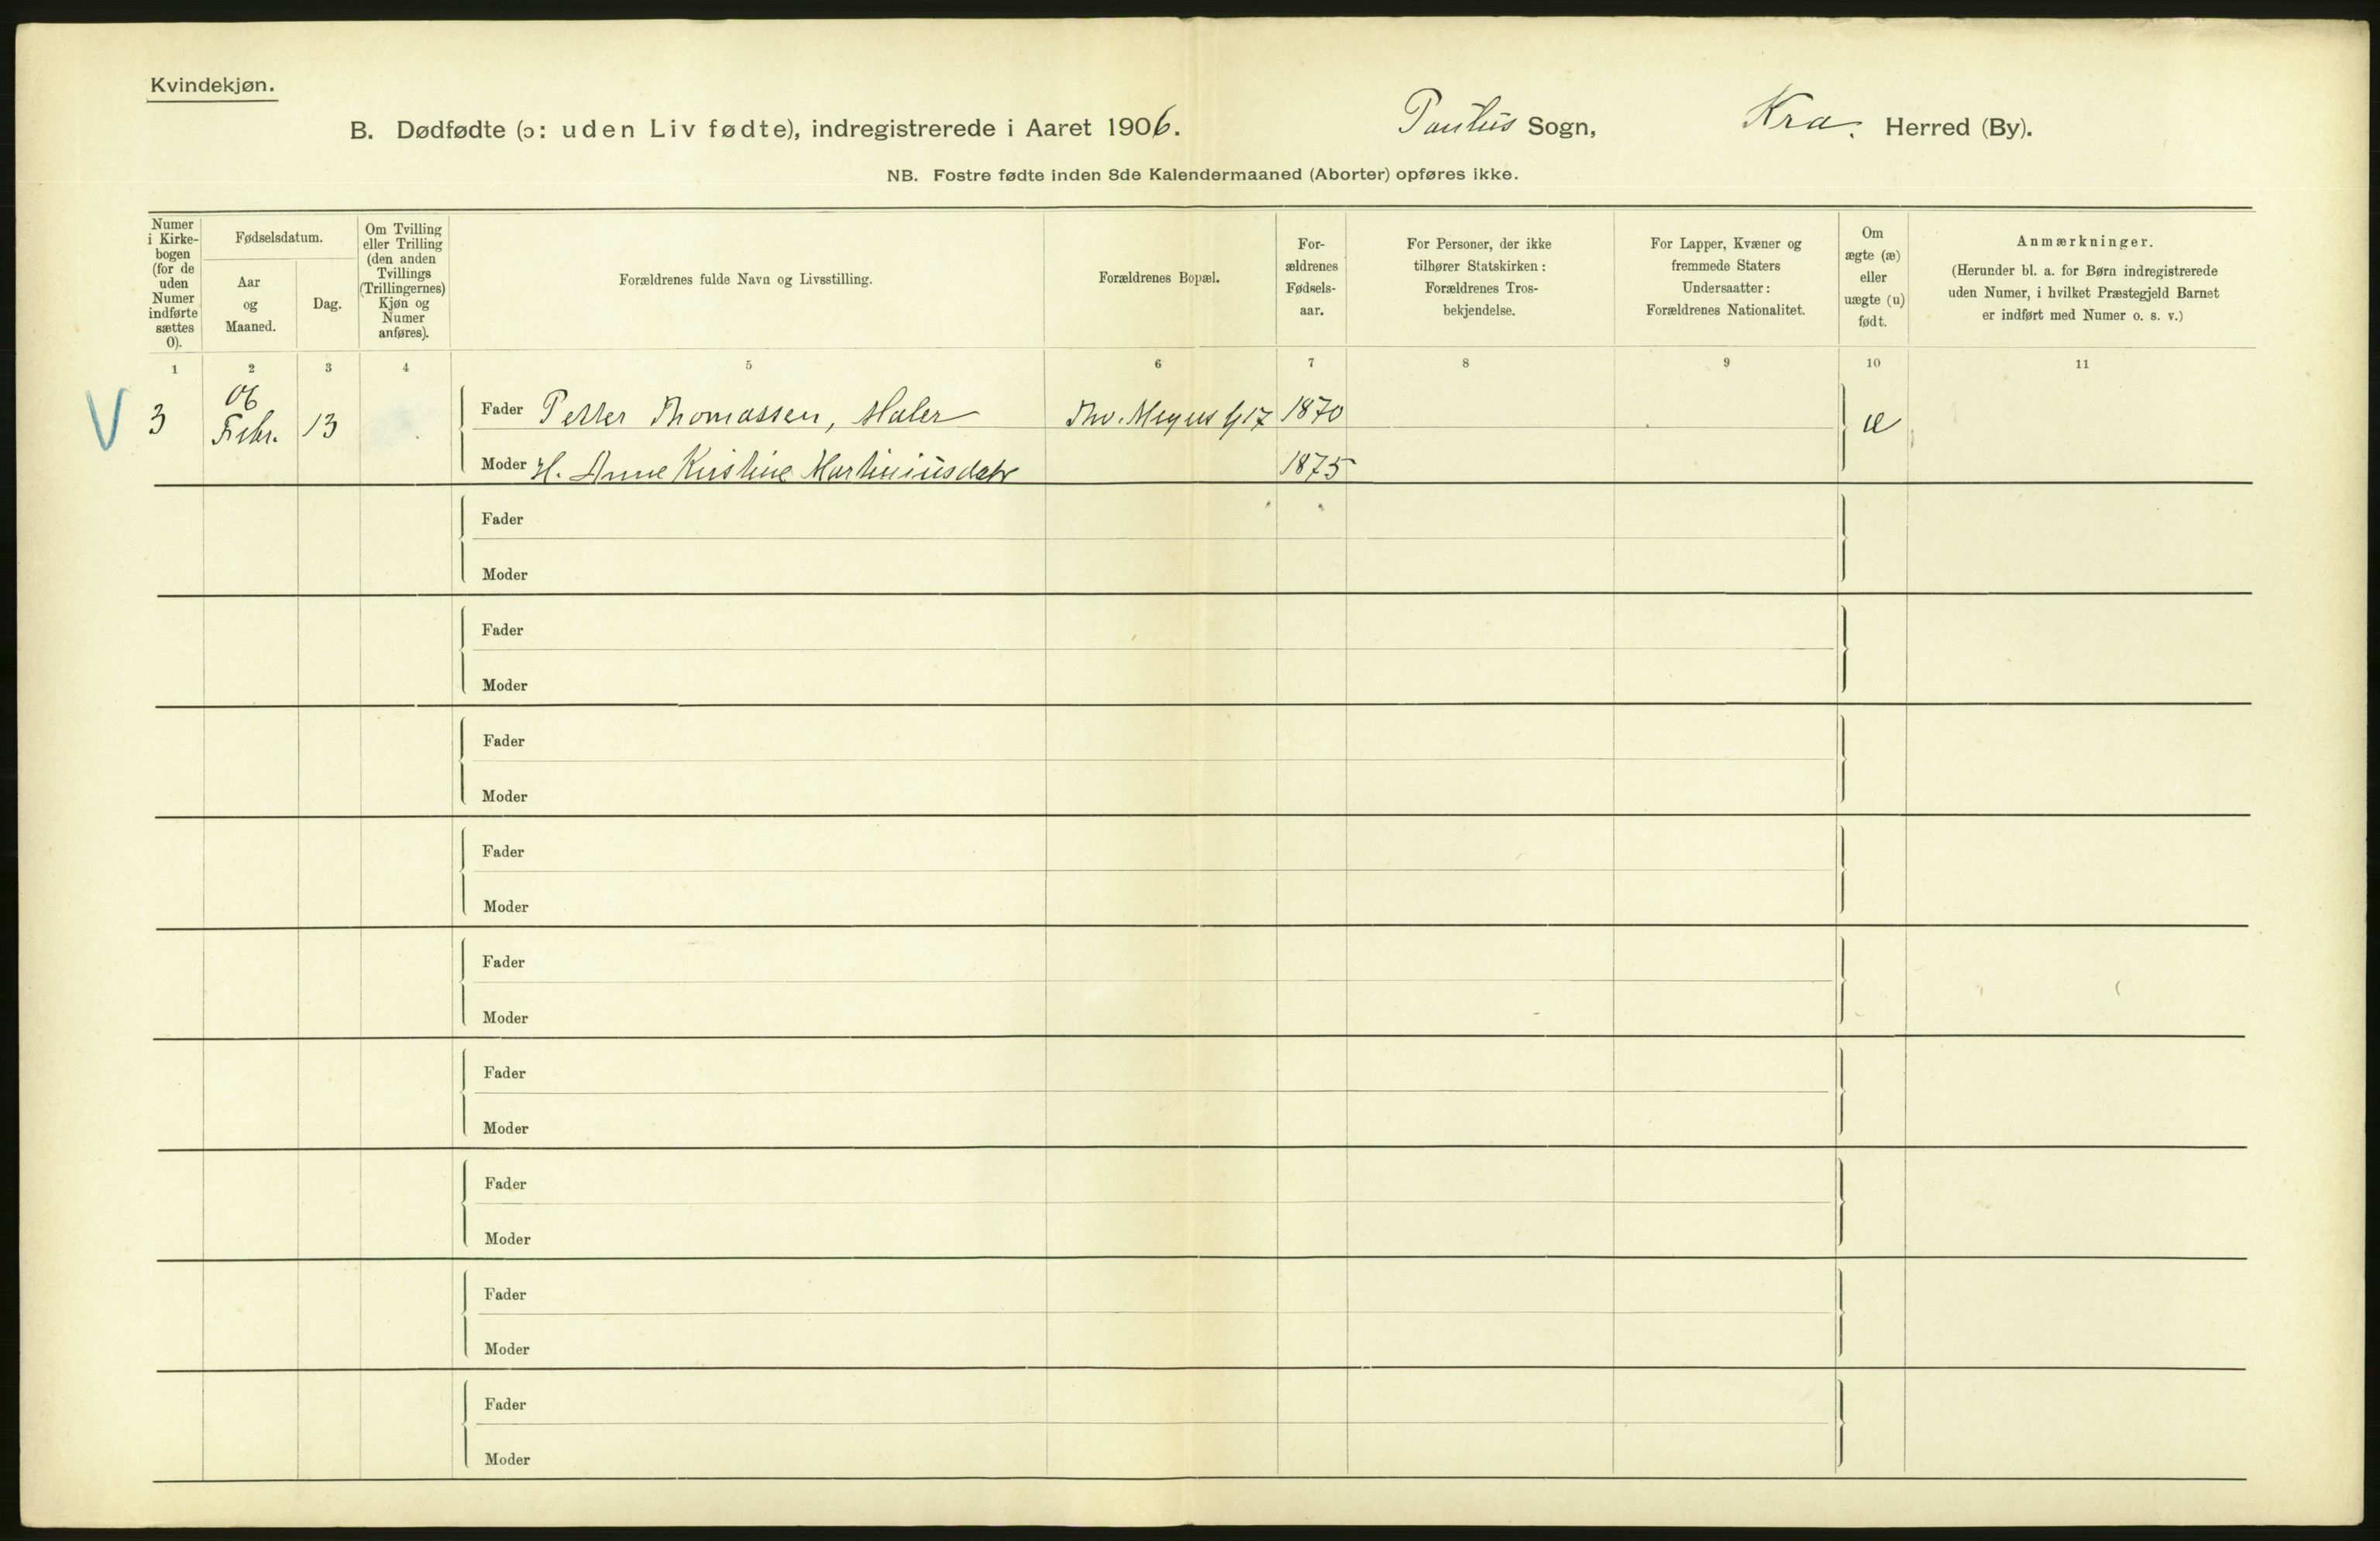 Kvindekjøn.
B. Dødfødte (ɔ: uden Liv fødte), indregistrerede i Aaret 1906. Paulus Sogn, Kra. Herred (By).
NB. Fostre fødte inden 8de Kalendermaaned (Aborter) opføres ikke.
Numer
i Kirke-
bogen
(for de
uden
Numer
indførte
sættes
0).
Fødselsdatum.
Aar
og
Maaned.
Dag.
Om Tvilling
eller Trilling
(den anden
Tvillings
(Trillingernes)
Kjøn og
Numer
anføres).
Forældrenes fulde Navn og Livsstilling.
Forældrenes Bopæl.
For-
ældrenes
Fødsels-
aar.
For Personer, der ikke
tilhører Statskirken:
Forældrenes Tros-
bekjendelse.
For Lapper, Kvæner og
fremmede Staters
Undersaatter:
Forældrenes Nationalitet.
Om
ægte (æ)
eller
uægte (u)
født.
Anmærkninger.
(Herunder bl. a. for Børn indregistrerede
uden Numer, i hvilket Præstegjeld Barnet
er indført med Numer o. s. v.)
1 2 3 4 5 6 7 8 9 10 11
V 3
06
Febr. 13
Fader Petter Thomassen, Maler Thv. Meyers g 17 1870 æ
Moder H. Anne Kristine Martiniusdatr 1875
Fader
Moder
Fader
Moder
Fader
Moder
Fader
Moder
Fader
Moder
Fader
Moder
Fader
Moder
Fader
Moder
Fader
Moder